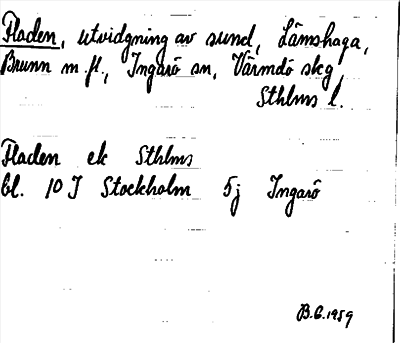 Fladen, utvidgning av sund, Lämshaga,
Brunn m.fl., Ingarö sn, Värmdö skg
Sthlms l.
Fladen ek Sthlms
bl. 10 I Stockholm 5j Ingarö
B.G. 1959